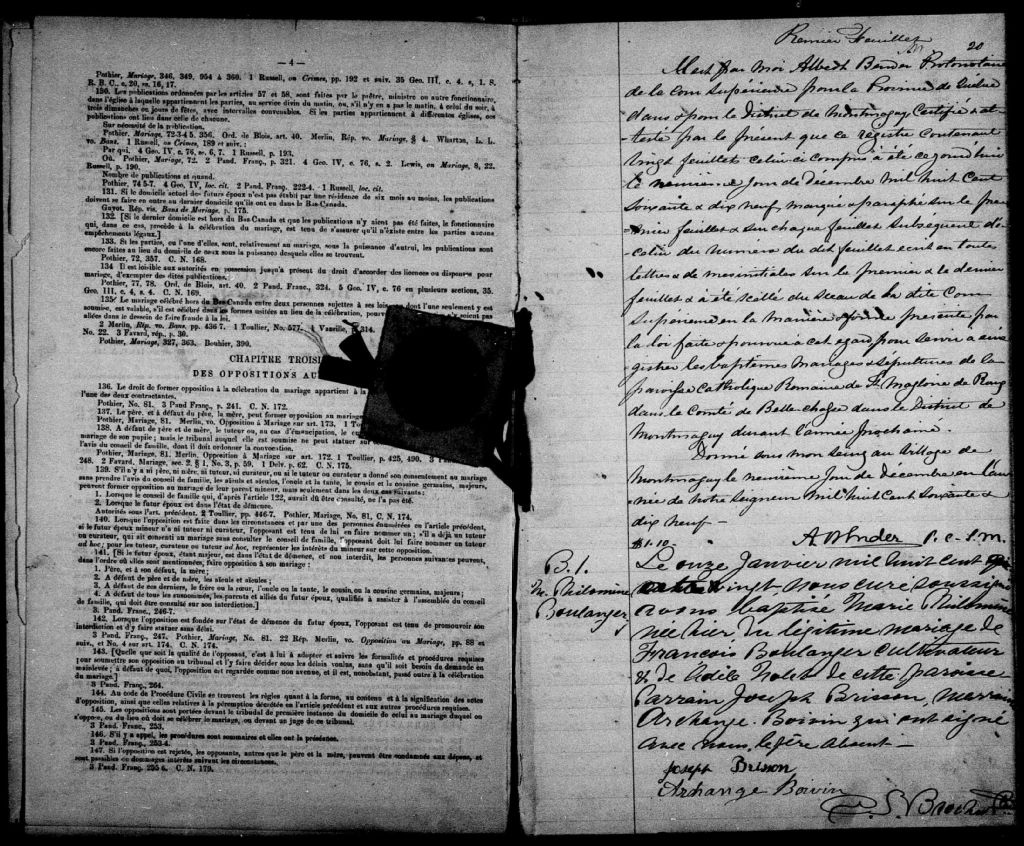 — 4 —
Pothier, Mariage, 346, 349, 954 à 360. 1 Russell, on Crimes, pp. 192 et suiv. 35 Geo. III, c. 4. s, 1. S.
R. B. C., c. 20, ss. 16, 17.
130. Les publications ordonnées par les articles 57 et 58, sont faites par le prêtre, ministre ou autre fonctionnaire,
dans l'église à laquelle appartiennent les parties, au service divin du matin, ou, s'il n'y en a pas le matin, à celui du soir, à
trois dimanches ou jours de fête, avec intervalles convenables. Si les parties appartiennent à différentes églises, ces
publications ont lieu dans celle de chacune.
Sur nécessité de la publication.
Pothier, Mariage, 72-3 4 5. 356. Ord. de Blois, art. 40. Merlin, Rép. vo. Mariage, § 4. Wharton, L. L.
vo. Bans. 1 Russell, on Crimes, 189 et suiv. :
Par qui. 4 Geo. IV, c. 76, ss. 6, 7. 1 Russell, p. 193.
Où. Pothier, Mariage, 72. 2 Pand. Franç., p. 321. 4 Geo. IV, c. 76, s. 2. Lewis, on Mariage, 8, 22.
Russell, p. 190.
Nombre de publications et quand.
Pothier, 74 5-7. 4 Geo. IV, loc. cit. 2 Pand. Franç. 222-4. 1 Russell, loc. cit.
131. Si le domicile actuel des futurs époux n'est pas établi par une résidence de six mois au moins, les publications
doivent se faire en outre au dernier domicile qu'ils ont eu dans le Bas-Canada.
Guyot. Rép. vis. Bans de Mariage. p. 175.
132. [Si le dernier domicile est hors du Bas Canada et que les publications n'y aient pas été faites, le fonctionnaire
qui, dans ce cas, procède à la célébration du mariage, est tenu de s'assurer qu'il n'existe entre les parties aucuns
empêchements légaux.]
133. Si les parties, ou l'une d'elles, sont, relativement au mariage, sous la puissance d'autrui, les publications sont
encore faites au lieu du domicile de ceux sous la puissance desquels elles se trouvent.
Pothier, 72, 357. C. N. 168.
134 Il est loisible aux autorités en possession jusqu'à présent du droit d'accorder des licences ou dispenses pour
mariage, d'exempter des dites publications.
Pothier, 77, 78. Ord. de Blois, art. 40. 2 Pand. Franç., 324. 5 Geo. IV, c. 76 en plusieurs sections, 35.
Geo. III, c. 4, s. 4. C. N. 169.
135 Le mariage célébré hors du Bas-Canada entre deux personnes sujettes à ses lois, ou dont l'une seulement y est
soumise, est valable, s'il est célébré dans les formes usitées au lieu de la célébration, pourvu que les parties n'y soient pas
allées dans le dessein de faire fraude à la loi.
2 Merlin, Rép. vo. Bans, pp. 436 7. 1 Toullier, No. 577. 1 Vazeille, p. 314.
No. 22. 3 Favard, rép., p. 30.
Pothier, Mariage, 327, 363. Bouhier, 390.
CHAPITRE TROISI
DES OPPOSITIONS AU
136. Le droit de former opposition à la célébration du mariage appartient à la
l'une des deux contractantes.
Pothier, No. 81. 3 Pand Franç., p. 241. C. N. 172.
137. Le père, et à défaut du père, la mère, peut former opposition au mariage
Pothier, Mariage, 81. Merlin, vo. Opposition à Mariage sur art. 173. 1 To
138. A défaut de père et de mère, le tuteur, ou, au cas d'émancipation, le cu
mariage de son pupile ; mais le tribunal auquel elle est soumise ne peut statuer sur
l'avis du conseil de famille, dont il doit ordonner la convocation.
Pothier, Mariage, 81. Merlin, Opposition à Mariage sur art. 172. 1 Toullier, p. 425, 490. 3
248. 2 Favard, Mariage, sec. 2. § 1, No. 3, p. 59. 1 Delv. p. 62. C. N. 175.
139. S'il n'y a ni père, ni mère, ni tuteur, ni curateur, ou si le tuteur ou curateur a donné son consentement au mariage
sans prendre l'avis du conseil de famille, les aïeuls et aïeules, l'oncle et la tante, le cousin et la cousine germains, majeurs,
peuvent former opposition au mariage de leur parent mineur, mais seulement dans les deux cas suivants :
1. Lorsque le conseil de famille qui, d'après l'article 122, aurait dû être consulté, ne l'a pas été.
2. Lorsque le futur époux est dans l'état de démence.
Autorités sous l'art. précédent. 2 Toullier, pp. 446-7. Pothier, Mariage, No. 81, C. N. 174.
140. Lorsque l'opposition est faite dans les circonstances et par une des personnes énumérées en l'article précédent,
si le futur époux mineur n'a ni tuteur ni curateur, l'opposant est tenu de lui en faire nommer un ; s'il a déjà un tuteur
ou curateur, qui ait consenti au mariage sans consulter le conseil de famille, l'opposant doit lui faire nommer un tuteur
ad hoc ; pour les tuteur, curateur ou tuteur ad hoc, représenter les intérêts du mineur sur cette opposition.
141. [Si le futur époux, étant majeur, est dans l'état de démence, et non interdit, les personnes suivantes peuvent,
dans l'ordre où elles sont mentionnées, faire opposition à son mariage :
1. Père, et à son défaut, la mère ;
2. A défaut de père et de mère, les aïeuls et aïeules ;
3. A défaut de ces derniers, le frère ou la sœur, l'oncle ou la tante, le cousin, ou la cousine germains, majeurs ;
4. A défaut de tous les susnommés, les parents et alliés du futur époux, qualifiés à assister à l'assemblée du conseil
de famille, qui doit être consulté sur son interdiction.]
3 Pand. Franç., 246-7.
142. Lorsque l'opposition est fondée sur l'état de démence du futur époux, l'opposant est tenu de promouvoir son
interdiction et d'y faire statuer sans délai.
3 Pand. Franç., 247. Pothier, Mariage, No. 81. 22 Rép. Merlin, vo. Opposition au Mariage, pp. 88 et
suiv., et No. 4 sur art. 174. C. N. 174.
143. [Quelle que soit la qualité de l'opposant, c'est à lui à adopter et suivre les formalités et procédures requises
pour soumettre son opposition au tribunal et l'y faire décider sous les délais voulus, sans qu'il soit besoin de demande en
mainlevée ; à défaut de quoi, l'opposition est regardée comme non avenue, et il est, nonobstant, passé outre à la célébration
du mariage.]
3 Pand. Franç., 264.
144. Au code de Procédure Civile se trouvent les règles quant à la forme, au contenu et à la signification des actes
d'opposition, ainsi que celles relatives à la péremption décrétée en l'article précédent et aux autres procédures requises.
145. Les oppositions sont portées devant le tribunal de première instance du domicile de celui au mariage duquel on
s'oppose, ou du lieu où doit se célébrer le mariage, ou devant un juge de ce tribunal.
3 Pand. Franç., 253.
146. S'il y a appel, les procédures sont sommaires et elles ont la préséance.
3 Pand. Franç. 253-4.
147. Si l'opposition est rejetée, les opposants, autres que le père et la mère, peuvent être condamnés aux dépens, et
sont passibles de dommages intérêts suivant les circonstances.
3 Pand. Franç. 255 6. C. N. 179.
Premier Feuillet
20
Albert Bender Protonotaire
de la Cour Supérieure pour la Province de Québec
dans & pour le District de Montmagny Certifie & at-
teste par le présent que ce registre contenant
vingt feuillets celui ci compris a été ce jourd'hui
le neuvième jour de décembre mil huit cent
soixante & dix neuf marqué & paraphé sur le pre-
mier feuillet & sur chaque feuillet subséquent de
celui du numéro du dit feuillet écrit en toutes
lettres & de mes initiales sur le premier & le dernier
feuillet & a été scellé du sceau de la dite Cour
Supérieure en la manière & forme présente par
la loi faite & pourvue à cet égard pour servir à enre
gistrer les baptêmes mariages & sépultures de la
paroisse Catholique Romaine de St Magloire de Roux
dans le Comté de Bellechasse dans le District de
Montmagny durant l'année prochaine.
Donné sous mon seing au village de
Montmagny le neuvième jour de décembre en l'an
née de notre Seigneur mil huit cent soixante &
dix neuf —
$1.10- A Bender P. C. S. M.
B. 1.
M. Philomène
Boulanger
Le onze Janvier mil huit cent
quatre vingt nous curé soussigné
avons baptisé Marie Philomène
née hier, du légitime mariage de
François Boulanger cultivateur
& de Adèle Nolet de cette paroisse
Parrain Joseph Brisson, marraine
Archange Boivin qui ont signé
avec nous, le père absent —
Joseph Brisson
Archange Boivin